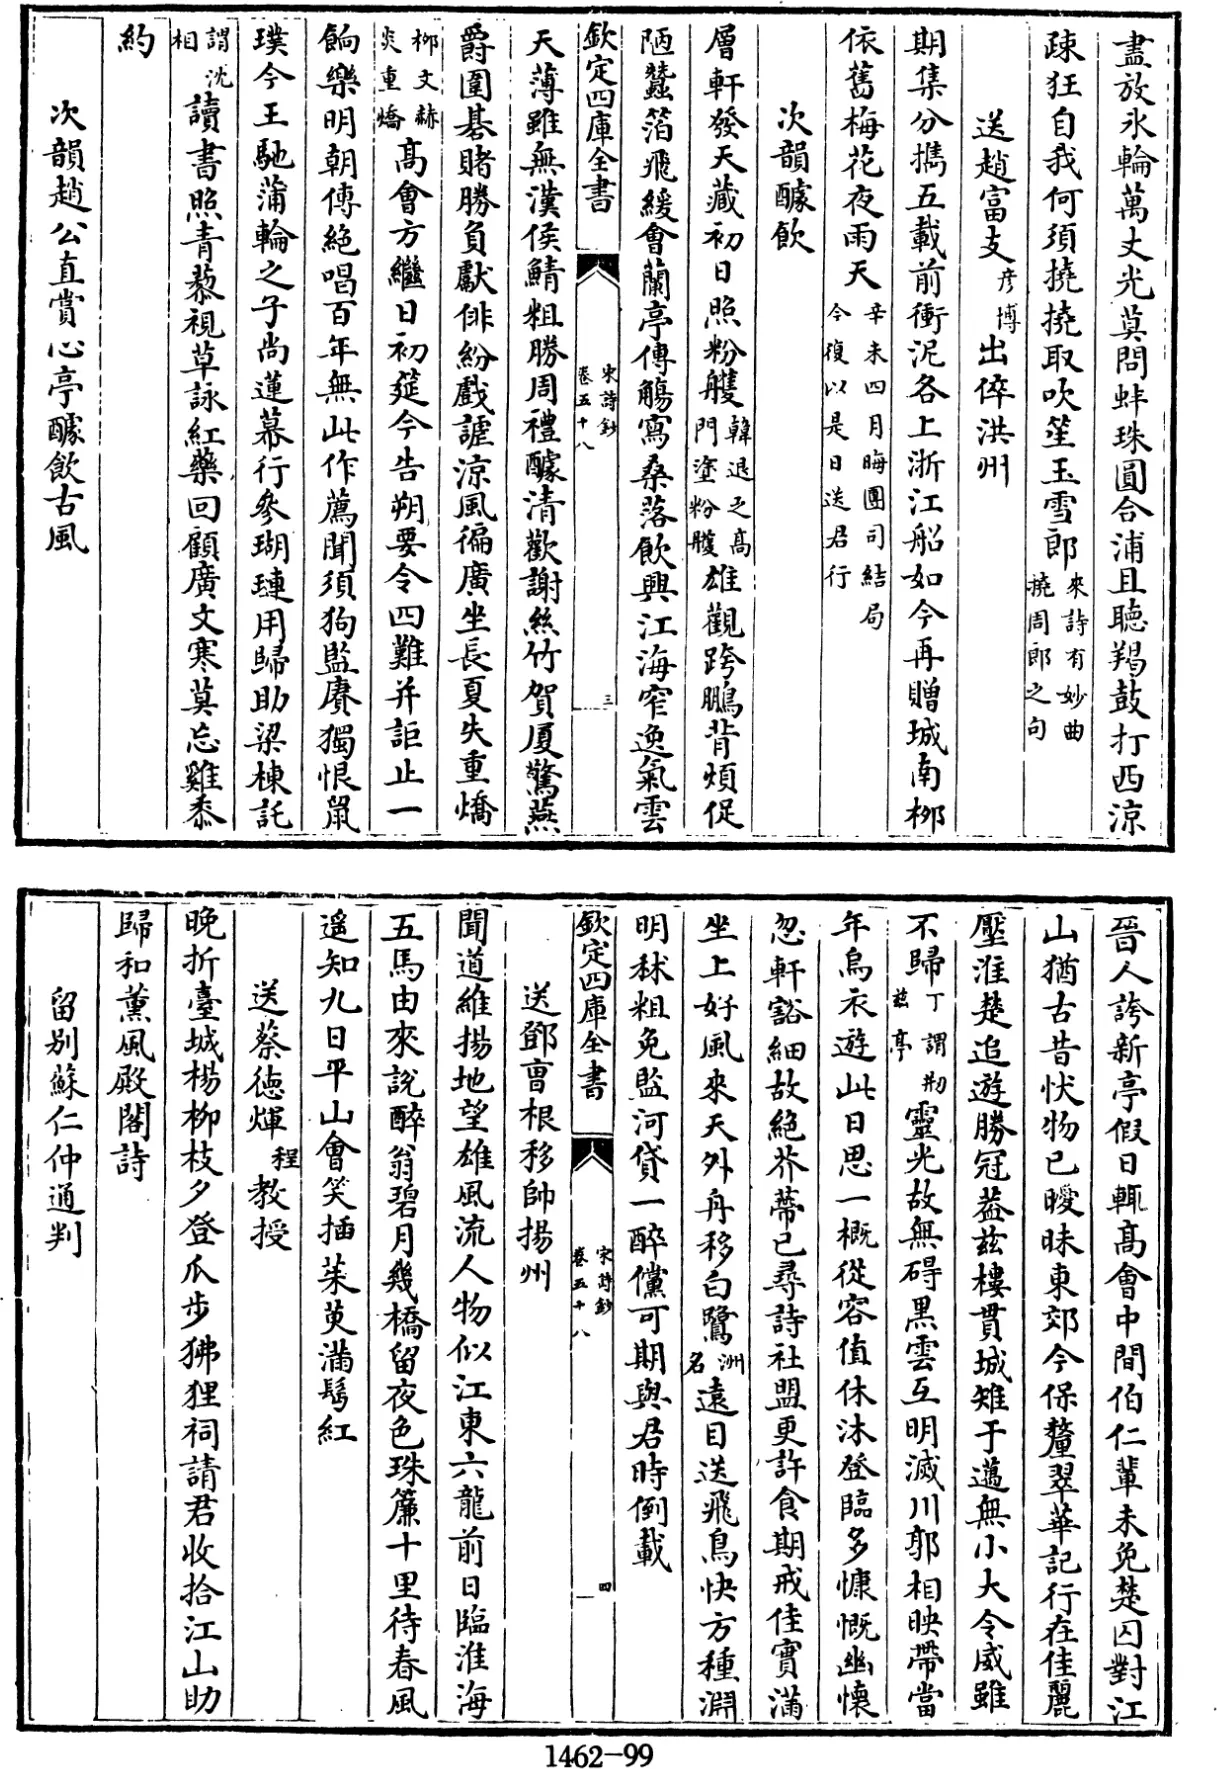 盡放氷輪萬丈光莫問蚌珠圓合浦且聽羯鼓打西涼
疎狂自我何須撓撓取吹笙玉雪郎來詩有妙曲撓周郎之句
送趙富文彦博出倅洪州
期集分攜五載前衝泥各上浙江船如今再贈城南柳
依舊梅花夜雨天辛未四月晦團司結局今復以是日送君行
次韻醵飲
層軒發天藏初日照粉艧韓退之髙門塗粉艧雄觀跨鵬背煩促
陋蠶箔飛緩會蘭亭傳觴寫桑落飲興江海窄逸氣雲
欽定四庫全書
宋詩鈔
卷五十八
三
天薄雖無漢侯鯖粗勝周禮醵清歡謝絲竹賀厦驚燕
爵圍棊賭勝負獻俳紛戲謔涼風徧廣坐長夏失重熇
柳文赫炎重熇髙會方繼日初筵今告朔要令四難并詎止一
餉樂明朝傳絶唱百年無此作薦聞須狗監賡獨恨鼠
璞今王馳蒲輪之子尚蓮幕行參瑚璉用歸助梁棟託
謂沈相讀書照青藜視草詠紅藥回顧廣文寒莫忘雞黍
約
次韻趙公直賞心亭醵飲古風
晉人誇新亭假日輒髙會中間伯仁輩未免楚囚對江
山猶古昔伏物已曖昧東郊今保釐翠華記行在佳麗
壓淮楚追遊勝冠葢兹樓貫城雉于邁無小大令威雖
不歸丁謂刱兹亭靈光故無碍黒雲互明滅川郭相映帶當
年烏衣遊此日思一概從容值休沐登臨多慷慨幽懷
忽軒豁細故絶芥蔕已尋詩社盟更許食期戒佳實滿
坐上好風來天外舟移白鷺洲名遠目送飛鳥快方種淵
明秫粗免監河貸一醉儻可期與君時倒載
欽定四庫全書
宋詩鈔
卷五十八
四
送鄧曺根移帥揚州
聞道維揚地望雄風流人物似江東六龍前日臨淮海
五馬由來説醉翁碧月幾橋留夜色珠簾十里待春風
遥知九日平山會笑插茱萸滿鬂紅
送蔡徳煇程教授
晚折臺城楊柳枝夕登瓜步狒狸祠請君收拾江山助
歸和薰風殿閣詩
留别蘇仁仲通判
1462-99